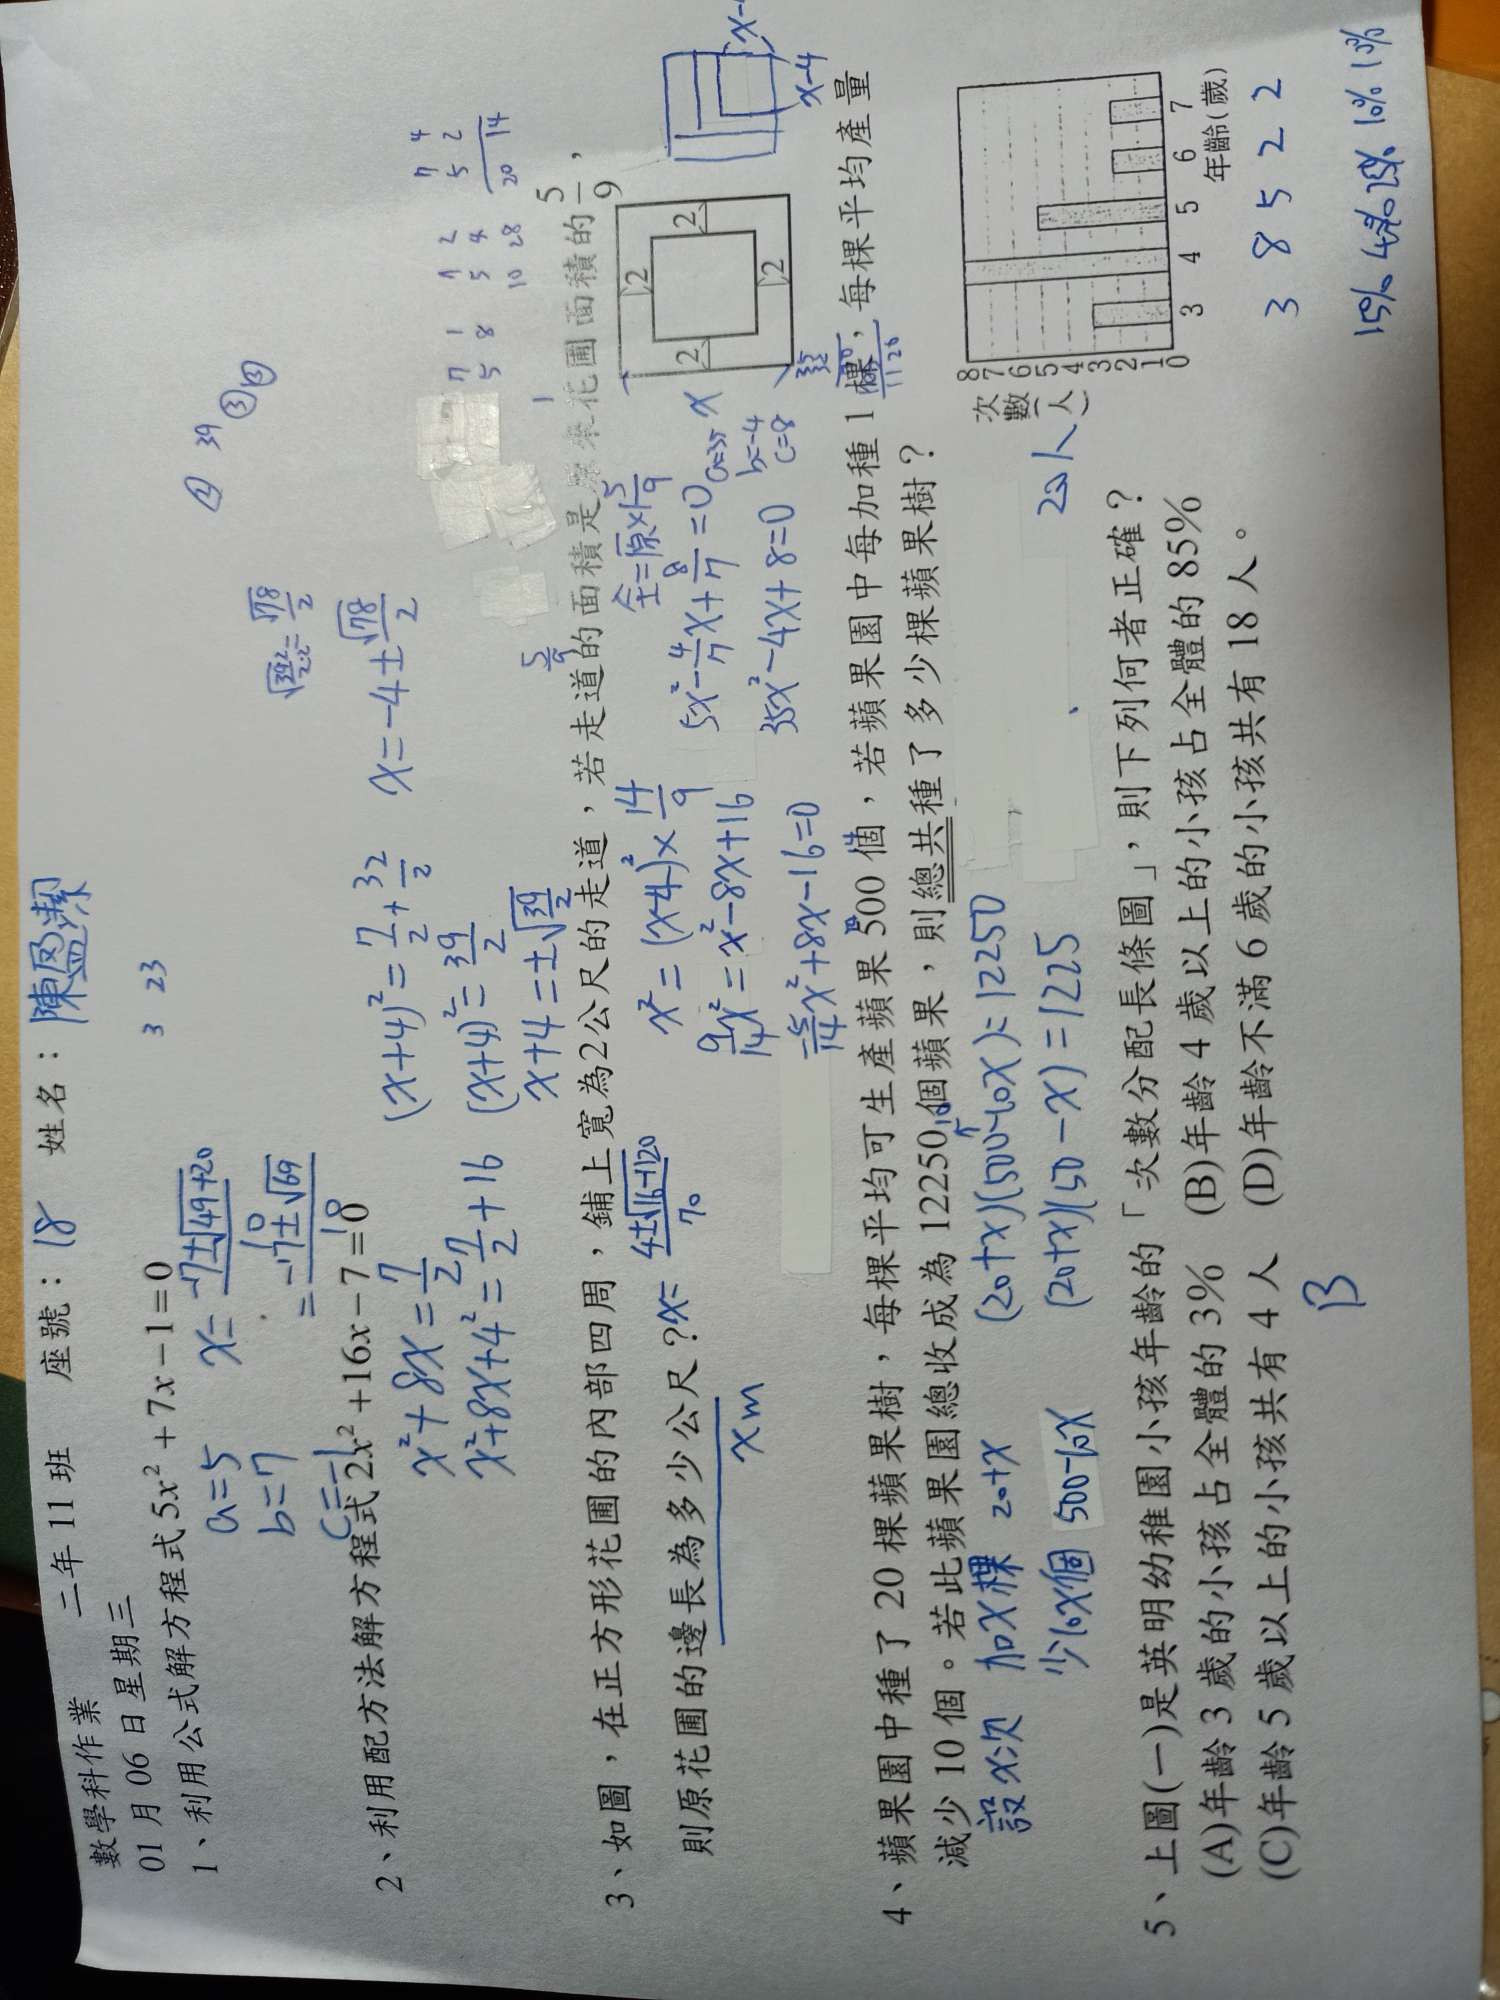 數學科作業 二年 11 班 座號：18 姓名：陳盈潔
01 月 06 日 星期三
1、利用公式解方程式 5x² + 7x − 1 = 0
3 23
a=5
b=7
c=-1
x= -7±√49+20 / 10
= -7±√69 / 10
39
√39·2 / 2·2 = √78 / 2
2、利用配方法解方程式 2x² + 16x − 7 = 0
x² + 8x = 7/2
x²+8x+4² = 7/2 + 16
(x+4)² = 7/2 + 32/2
(x+4)² = 39/2
x+4 = ±√39/2
x = -4 ± √78/2
7 1 1 2 7 4
5 8 5 4 5 2
10 28 20 14
3、如圖，在正方形花圃的內部四周，鋪上寬為2公尺的走道，若走道的面積是原來花圃面積的 5/9，
則原花圃的邊長為多少公尺？
xm
x= 4±√16-1120 / 70
x² = (x-4)² × 14/9
9/14 x² = x² - 8x + 16
-5/14 x² + 8x - 16 = 0
5x² - 4/7 x + 8/7 = 0
35x² - 4x + 8 = 0
a=35
b=-4
c=8
x
2
2
2
2
x-4
4、蘋果園中種了 20 棵蘋果樹，每棵平均可生產蘋果 500 個，若蘋果園中每加種 1 棵，每棵平均產量
減少 10 個。若此蘋果園總收成為 12250 個蘋果，則總共種了多少棵蘋果樹？
設x次 加x棵 20+x
少10x個 500-10x
(20+x)(500-10x)=12250
(20+x)(50-x)=1225
次數(人)
8
7
6
5
4
3
2
1
0
3 4 5 6 7
年齡(歲)
20人
3 8 5 2 2
5、上圖(一)是英明幼稚園小孩年齡的「次數分配長條圖」，則下列何者正確？
(A)年齡 3 歲的小孩占全體的 3% (B)年齡 4 歲以上的小孩占全體的 85%
(C)年齡 5 歲以上的小孩共有 4 人 (D)年齡不滿 6 歲的小孩共有 18 人。
B